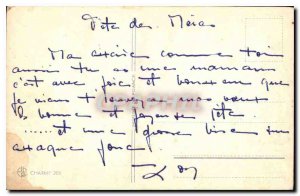 Fête des Mères
Ma chérie comme toi
aussi tu es une maman
c'est avec joie et bonheur que
je viens t' mes vœux
de bonne et joyeuse fête.
...... et une grosse bise sur
chaque joue.
CHARM' 203